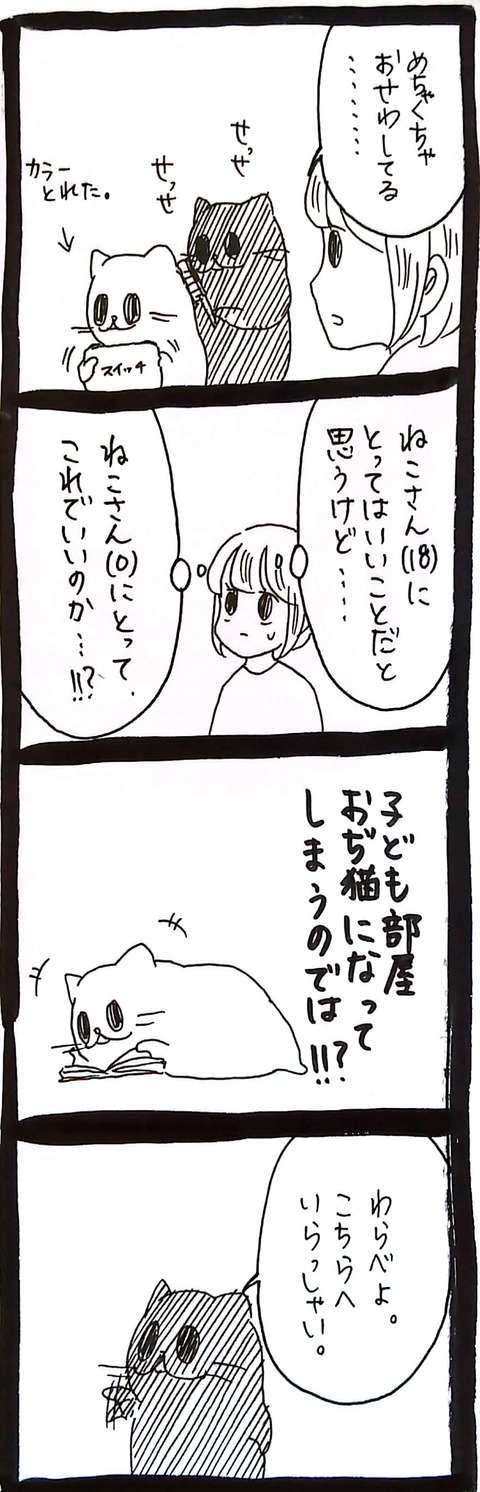 めちゃくちゃ
おせわしてる
………
せっせ
せっせ
カラー
とれた。
スイッチ
ねこさん(18)に
とってはいいことだと
思うけど……
ねこさん(0)にとって、
これでいいのか…!!?
子ども部屋
おぢ猫になって
しまうのでは!!?
わらべよ。
こちらへ
いらっしゃい。